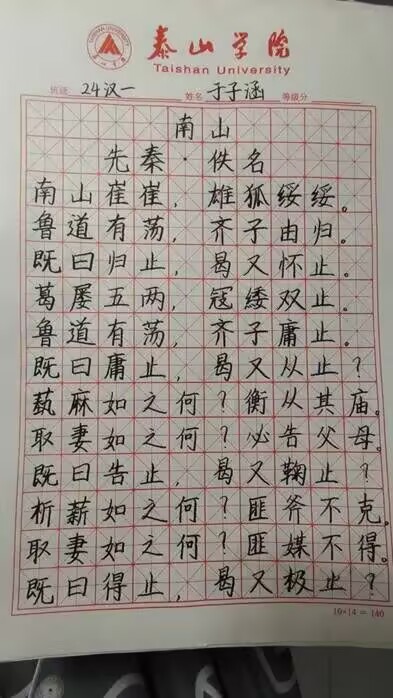 泰山学院
Taishan University
班级 24汉一 姓名 于子涵 等级分
南山
先秦·佚名
南山崔崔，雄狐绥绥。
鲁道有荡，齐子由归。
既曰归止，曷又怀止。
葛屡五两，冠緌双止。
鲁道有荡，齐子庸止。
既曰庸止，曷又从止？
蓺麻如之何？衡从其亩。
取妻如之何？必告父母。
既曰告止，曷又鞠止？
析薪如之何？匪斧不克。
取妻如之何？匪媒不得。
既曰得止，曷又极止？
10×14＝140